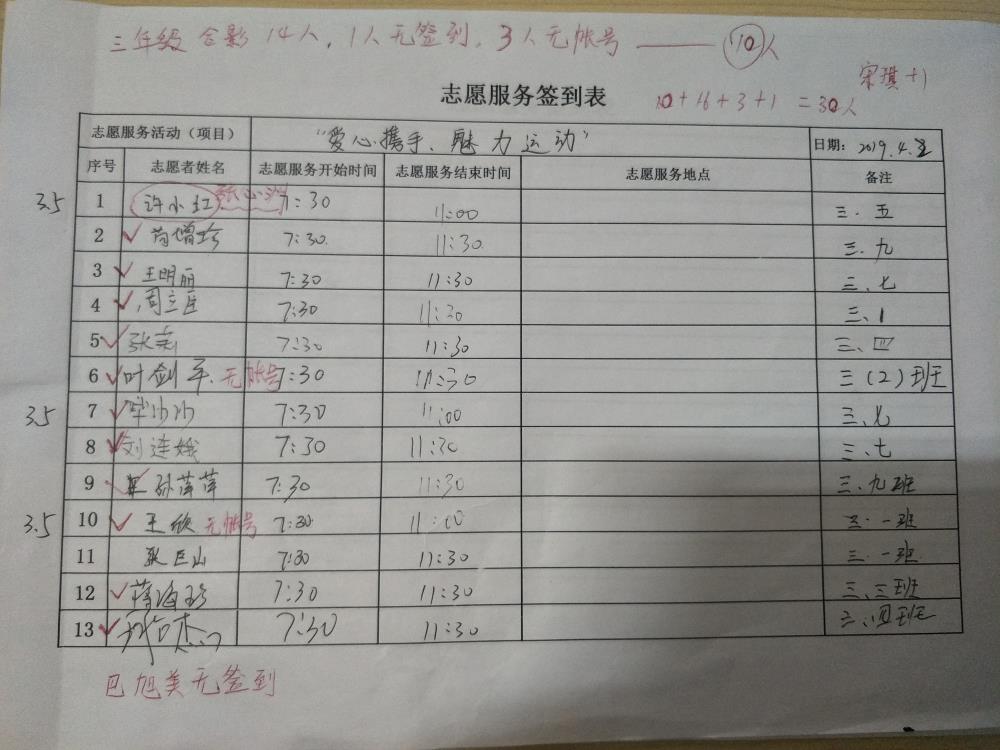 三年级 合影 14人，1人无签到，3人无帐号 —— 10人
宋琪 +1
志愿服务签到表
10+16+3+1=30人
志愿服务活动（项目） "爱心携手、魅力运动" 日期：2019.4.
序号 志愿者姓名 志愿服务开始时间 志愿服务结束时间 志愿服务地点 备注
3.5 1 许小红 7:30 11:00 三.五
2 ✓ 7:30. 11:30 三.九
3 ✓ 王明丽 7:30 11:30 三、七
4 ✓ 周立臣 7:30 11:30 三、1
5 ✓ 张 7:30 11:30 三、四
6 ✓ 叶剑平. 无帐号 7:30 11:30 三（2）班
3.5 7 ✓ 毕沙沙 7:30 11:00 三、七
8 ✓ 刘连娥 7:30 11:30 三、七
9 ✓ 孙萍萍 7:30 11:30 三、九班
3.5 10 ✓ 王欣 无帐号 7:30 11:00 三.一班
11 张巨山 7:30 11:30 三.一班
12 ✓ 蒋海珍 7:30 11:30 三、三班
13 ✓ 7:30 11:30 三、四班
巴旭美无签到